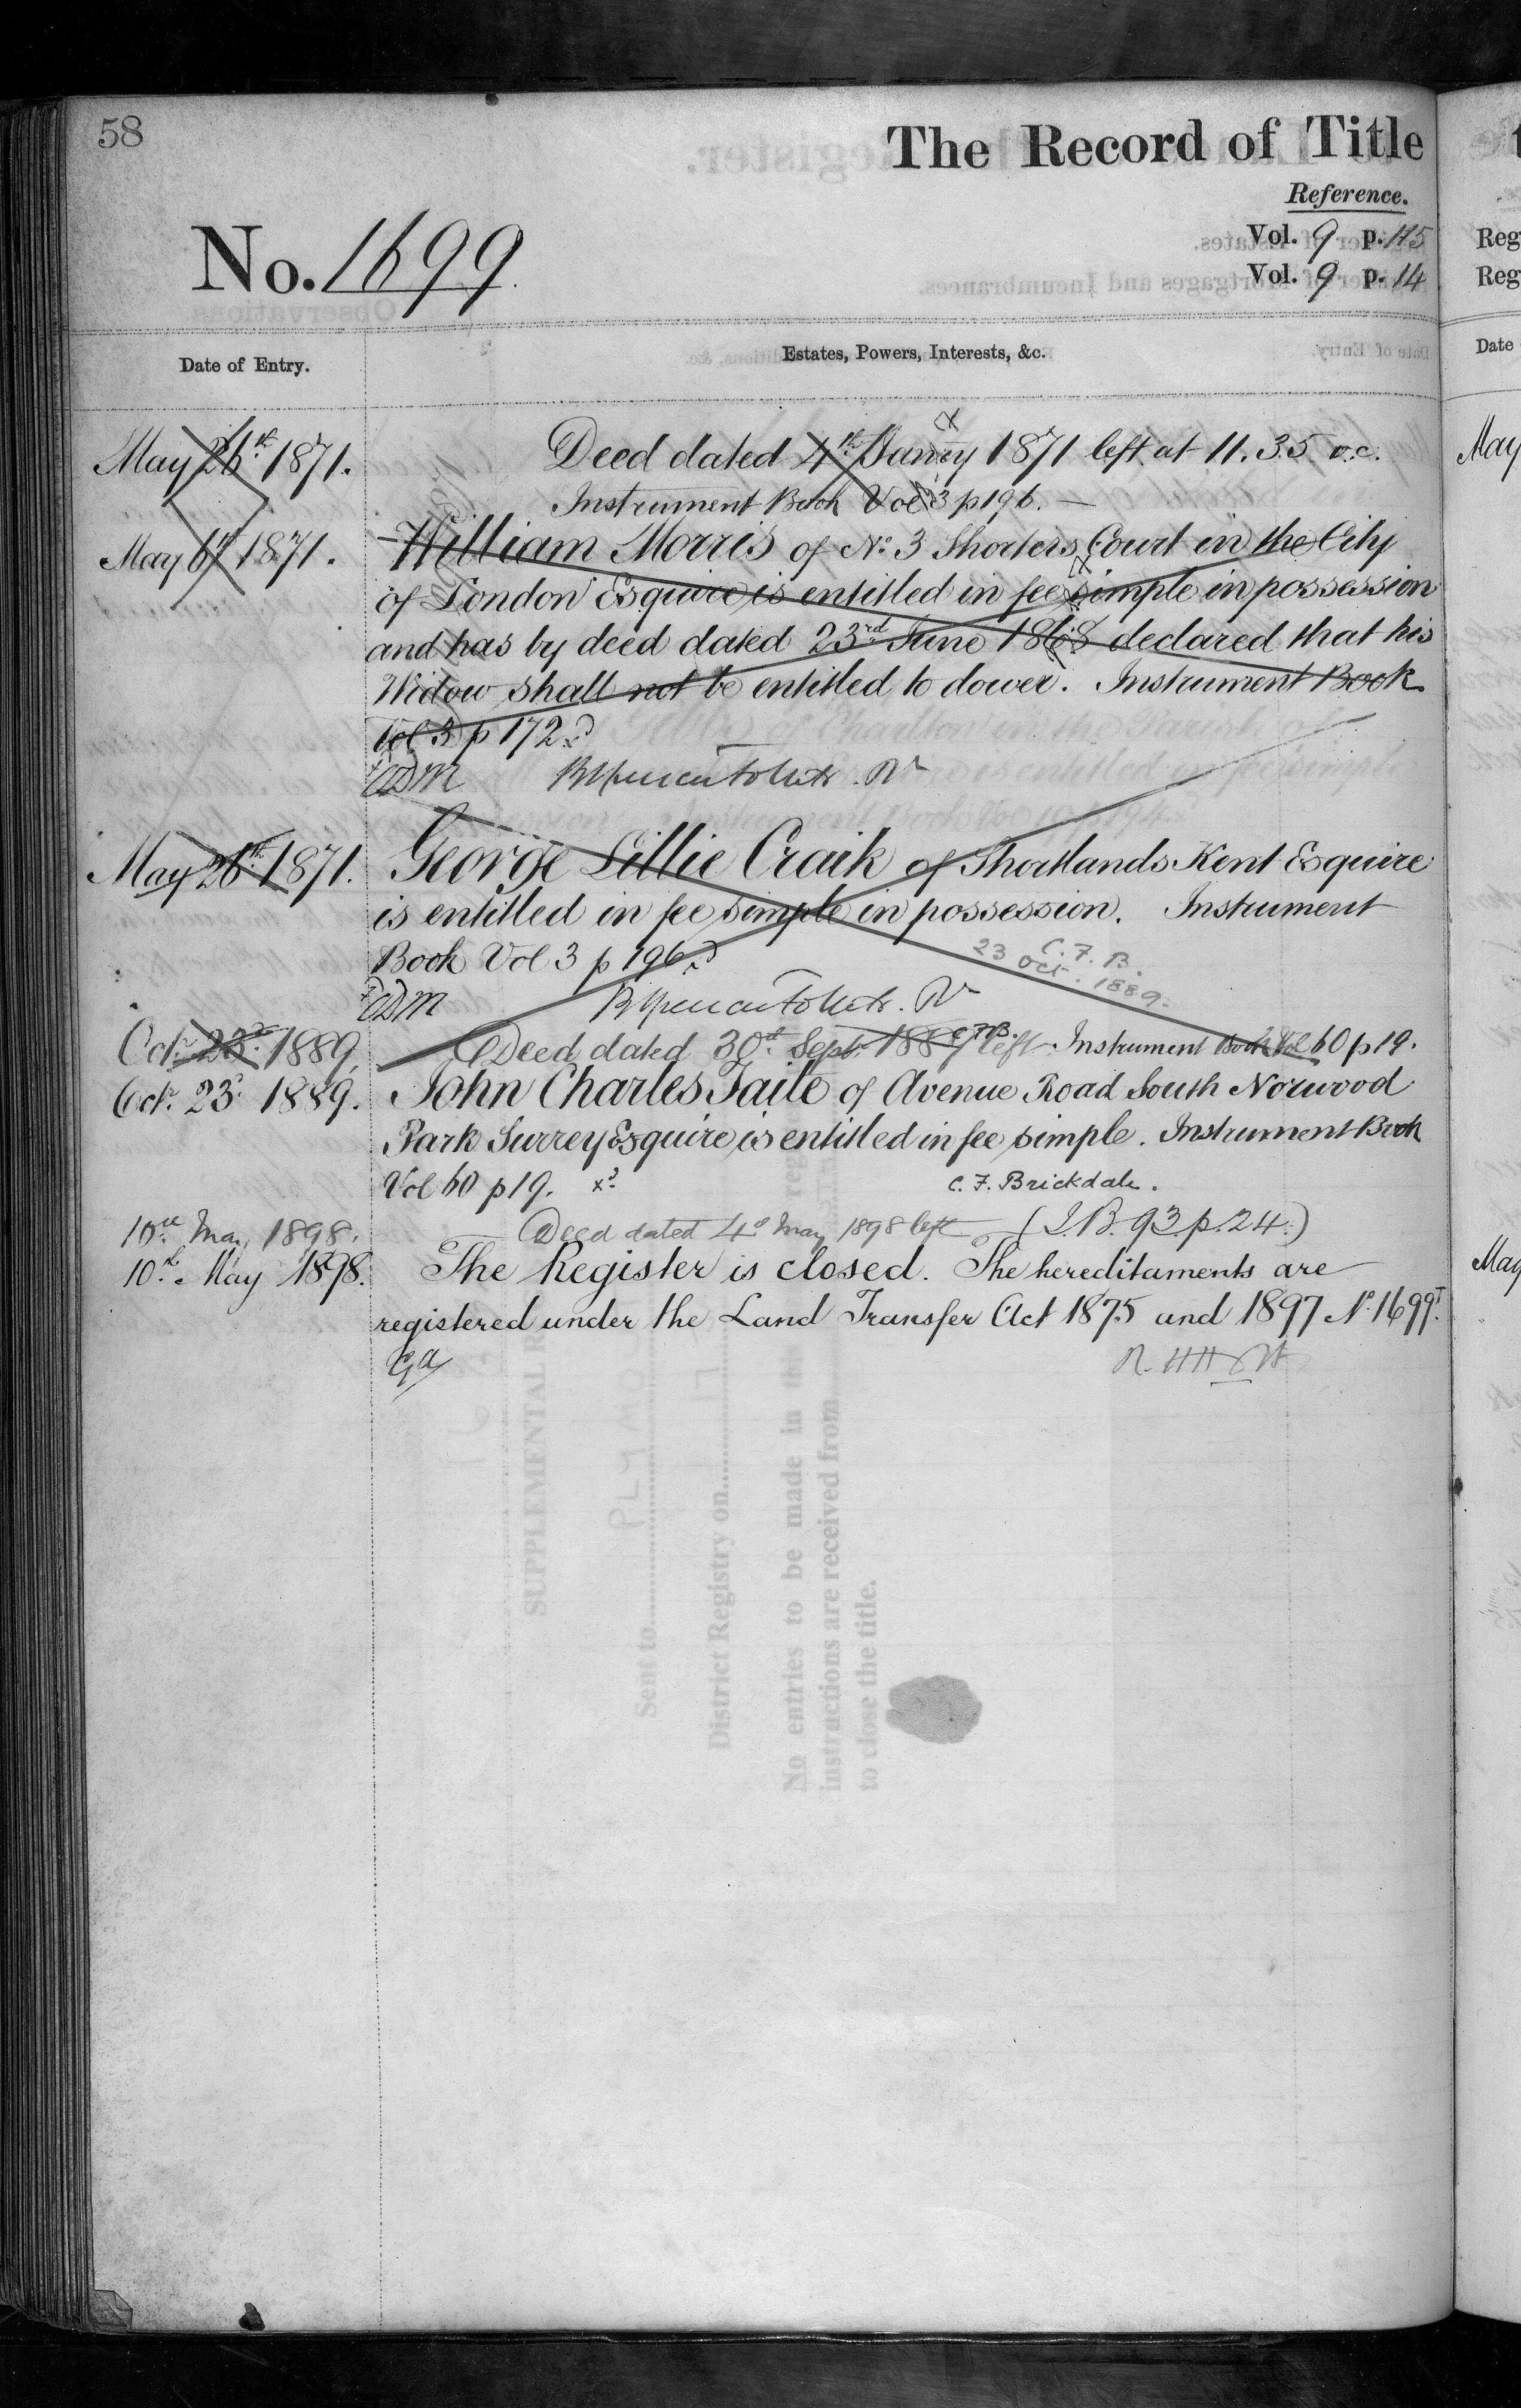 58
The Record of Title
Reference.
No. 1699
Vol. 9 p. 115
Vol. 9 p. 14
Reg
Reg
Date of Entry.
Estates, Powers, Interests, &c.
Date
May 26th 1871.
Deed dated 4th Janry 1871 left at 11.35 o.c.
May
Instrument Book Vol 3 p 196.
May 6th 1871.
William Morris of No. 3 Shorters Court in the City
of London Esquire is entitled in fee simple in possession
and has by deed dated 23rd June 1868 declared that his
Widow shall not be entitled to dower. Instrument Book
Vol 3 p 172.
May 26th 1871.
George Lillie Craik of Shortlands Kent Esquire
is entitled in fee simple in possession. Instrument
Book Vol 3 p 196.
C.F.B.
23 Oct. 1889.
C.F.B.
Octr. 23d. 1889.
Deed dated 30th Septr. 1889 left Instrument Book Vol 60 p 19.
Octr. 23d 1889.
John Charles Taite of Avenue Road South Norwood
Park Surrey Esquire is entitled in fee simple. Instrument Book
Vol 60 p 19.
C. F. Brickdale.
10th May 1898.
Deed dated 4th May 1898 left (I.B. 93 p. 24.)
10th May 1898.
The Register is closed. The hereditaments are
May
registered under the Land Transfer Act 1875 and 1897 No. 1699T.
SUPPLEMENTAL
Sent to
District Registry on
No entries to be made in the reg
instructions are received from
to close the title.